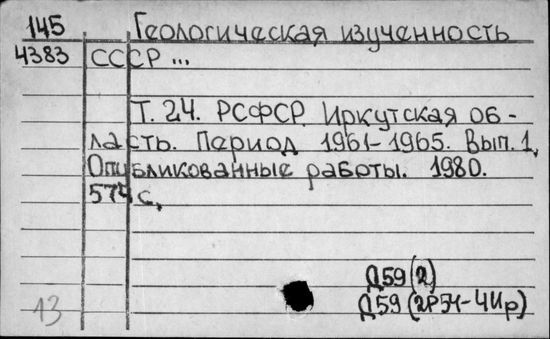 145 Геологическая изученность
4383 СССР ...
Т. 24. РСФСР. Иркутская об-
ласть. Период 1961-1965. Вып. 1.
Опубликованные работы. 1980.
574 с.
Д59(2)
Д59(2Р54-4Ир)
13